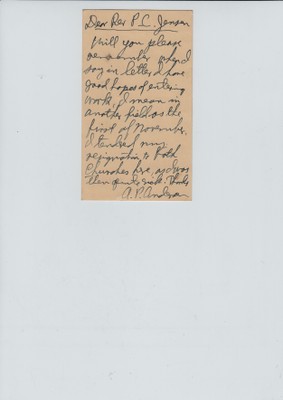 Dear Rev P. C. Jensen
Will you please
remember what I
say in letter I have
good hopes of entering
work, I mean in
another field as the
first of November.
I tendred my
resignation to both
Churches here, as I was
then quite sick. Thanks
A. P. Andersen